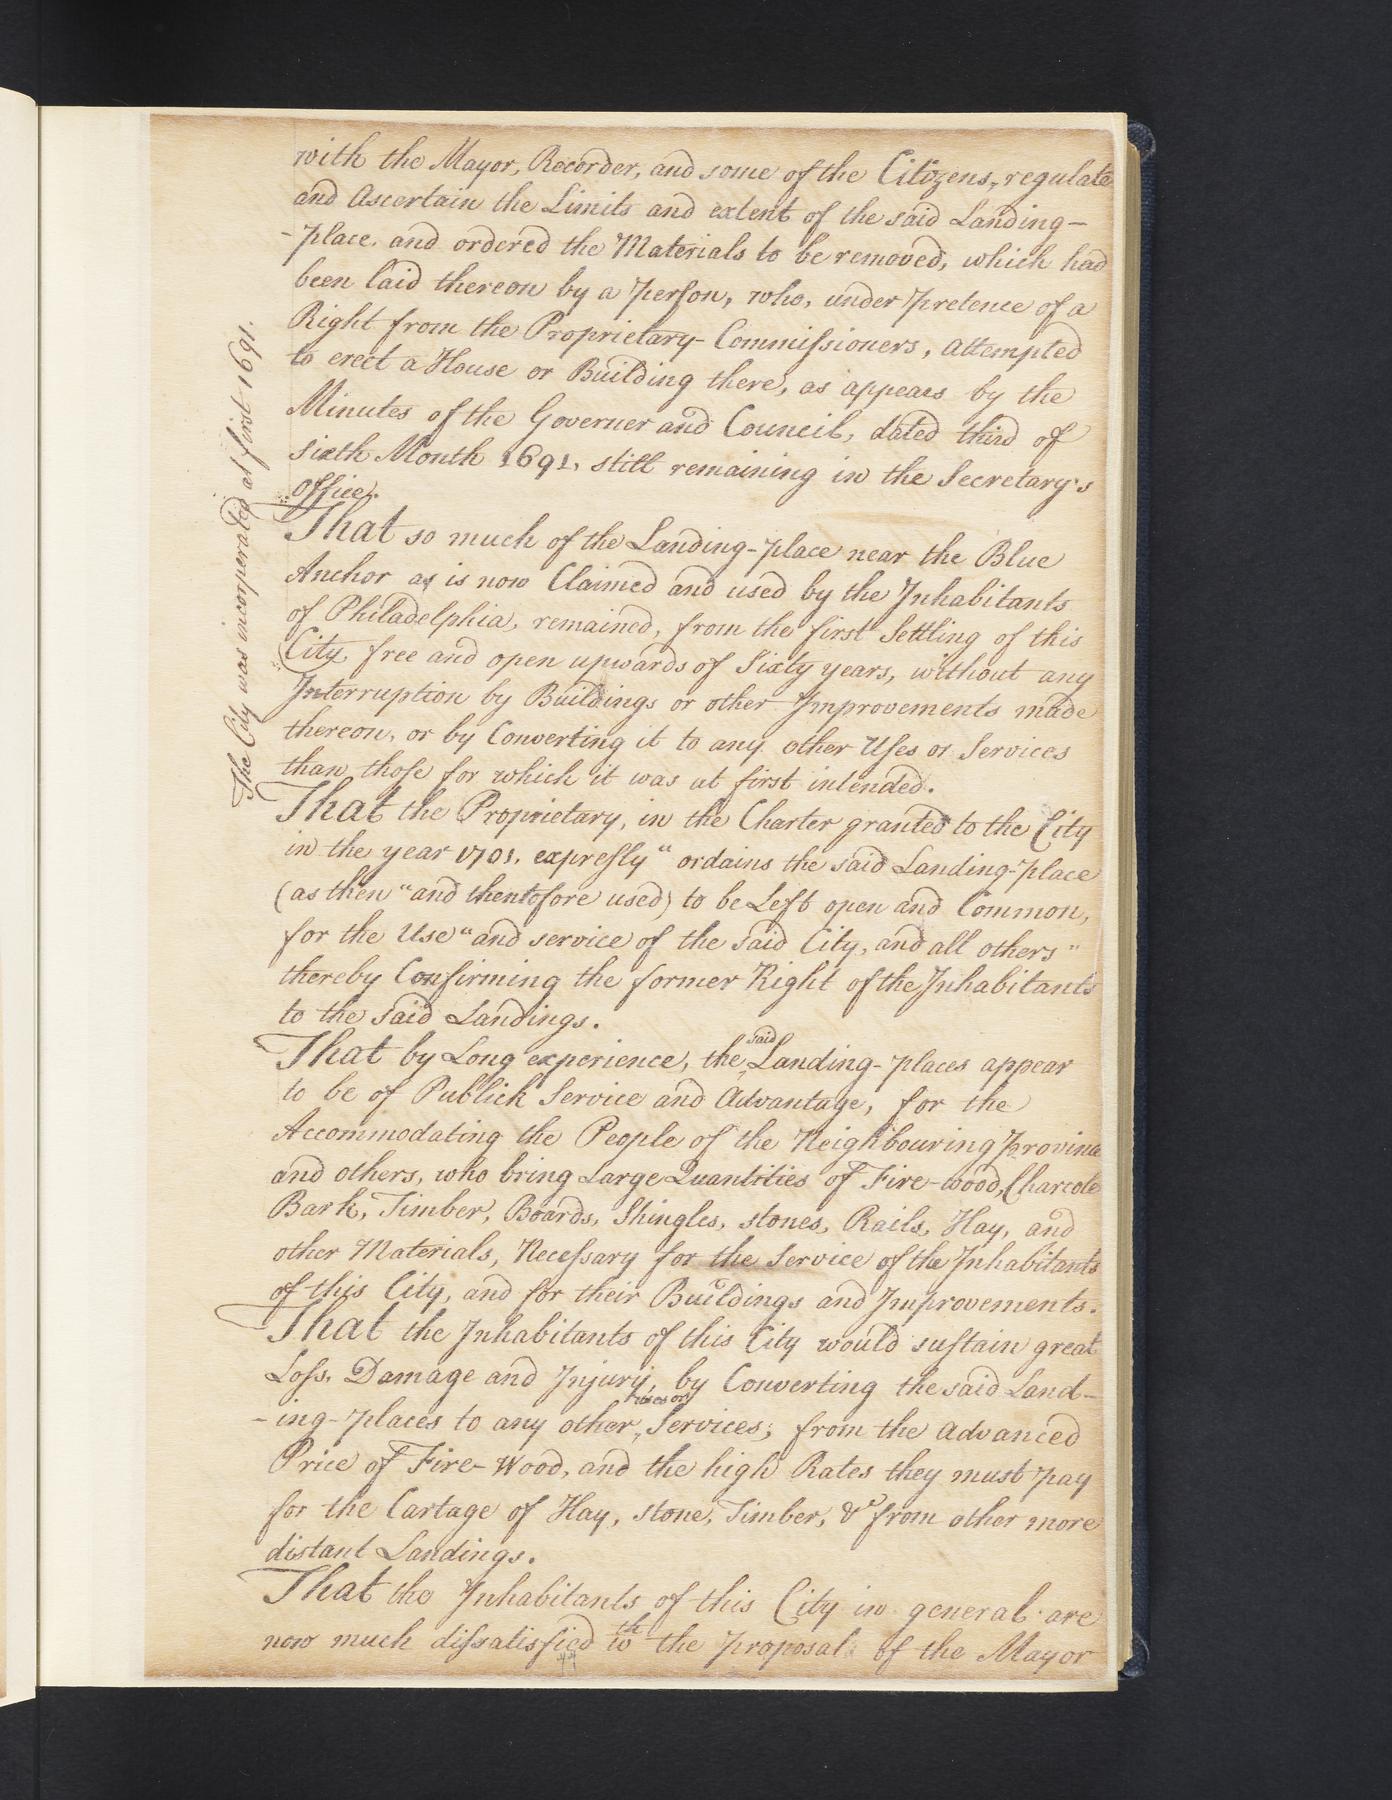 with the Mayor, Recorder, and some of the Citizens, regulate
and Ascertain the Limits and extent of the said Landing-
-place. and ordered the Materials to be removed, which had
been laid thereon by a person, who, under pretence of a
Right from the Proprietary Commissioners, attempted
to erect a House or Building there, as appears by the
Minutes of the Governer and Council, dated third of
sixth Month 1691, still remaining in the Secretary's
office.
That so much of the Landing-place near the Blue
Anchor as is now Claimed and used by the Inhabitants
of Philadelphia, remained, from the first Settling of this
City free and open upwards of Sixty years, without any
Interruption by Buildings or other Improvements made
thereon, or by Converting it to any other Uses or Services
than those for which it was at first intended.
That the Proprietary, in the Charter granted to the City
in the year 1701, expressly "ordains the said Landing-place
(as then "and thentofore used) to be Left open and Common,
for the Use "and service of the said City, and all others"
thereby Confirming the former Right of the Inhabitants
to the said Landings.
That by Long experience, the said Landing-places appear
to be of Publick Service and Advantage, for the
Accommodating the People of the Neighbouring province
and others, who bring Large Quantities of Fire-wood, Charcole
Bark, Timber, Boards, Shingles, stones, Rails, Hay, and
other Materials, Necessary for the Service of the Inhabitants
of this City, and for their Buildings and Improvements.
That the Inhabitants of this City would sustain great
Loss, Damage and Injury, by Converting the said Land-
-ing-places to any other uses or Services; from the advanced
Price of Fire-Wood, and the high Rates they must pay
for the Cartage of Hay, stone, Timber, &c from other more
distant Landings.
That the Inhabitants of this City in general are
now much dissatisfied with the proposal of the Mayor
44
The City was incorperated at first 1691.